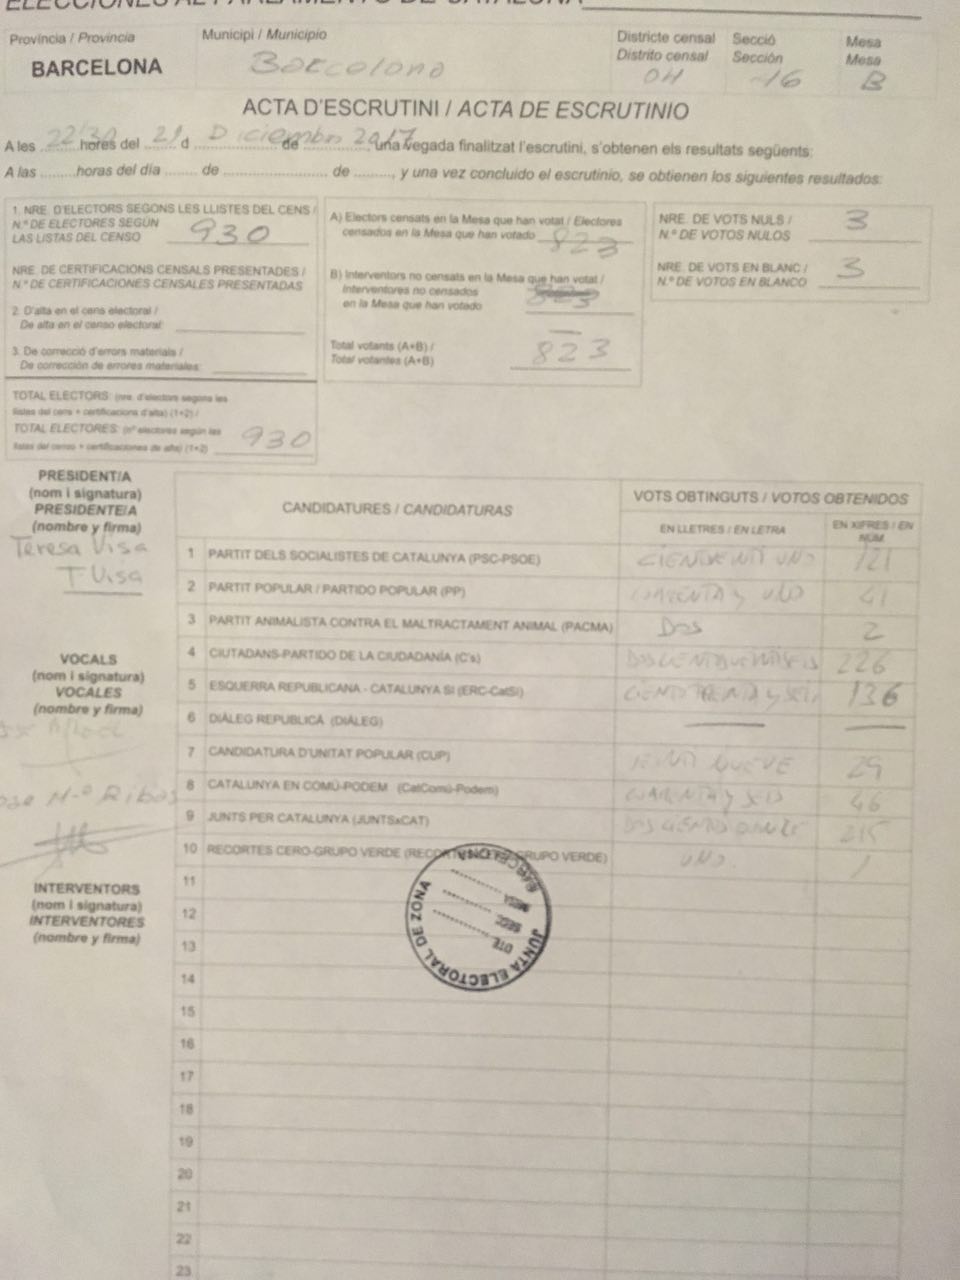 ELECCIONES AL PARLAMENTO DE CATALUÑA
Província / Provincia
BARCELONA
Municipi / Municipio
Barcelona
Districte censal
Distrito censal
04
Secció
Sección
16
Mesa
Mesa
B
ACTA D'ESCRUTINI / ACTA DE ESCRUTINIO
A les 22'30 hores del 21 d Diciembre de 2017, una vegada finalitzat l'escrutini, s'obtenen els resultats següents:
A las ........horas del día ....... de ...................... de ........, y una vez concluido el escrutinio, se obtienen los siguientes resultados:
1. NRE. D'ELECTORS SEGONS LES LLISTES DEL CENS /
N.º DE ELECTORES SEGÚN
LAS LISTAS DEL CENSO 930
NRE. DE CERTIFICACIONS CENSALS PRESENTADES /
N.º DE CERTIFICACIONES CENSALES PRESENTADAS
2. D'alta en el cens electoral /
De alta en el censo electoral:
3. De correcció d'errors materials /
De corrección de errores materiales:
TOTAL ELECTORS: (nre. d'electors segons les
llistes del cens + certificacions d'alta) (1+2) /
TOTAL ELECTORES: (nº electores según las
listas del censo + certificaciones de alta) (1+2) 930
A) Electors censats en la Mesa que han votat / Electores
censados en la Mesa que han votado 823
B) Interventors no censats en la Mesa que han votat /
Interventores no censados
en la Mesa que han votado
Total votants (A+B) /
Total votantes (A+B) 823
NRE. DE VOTS NULS /
N.º DE VOTOS NULOS 3
NRE. DE VOTS EN BLANC /
N.º DE VOTOS EN BLANCO 3
PRESIDENT/A
(nom i signatura)
PRESIDENTE/A
(nombre y firma)
Teresa Visa
T Visa
VOCALS
(nom i signatura)
VOCALES
(nombre y firma)
Jose Mª Ribas
INTERVENTORS
(nom i signatura)
INTERVENTORES
(nombre y firma)
CANDIDATURES / CANDIDATURAS
VOTS OBTINGUTS / VOTOS OBTENIDOS
EN LLETRES / EN LETRA
EN XIFRES / EN
NÚM.
1 PARTIT DELS SOCIALISTES DE CATALUNYA (PSC-PSOE) CIENTVEINTI UNO 121
2 PARTIT POPULAR / PARTIDO POPULAR (PP) CUARENTA y UNO 41
3 PARTIT ANIMALISTA CONTRA EL MALTRACTAMENT ANIMAL (PACMA) DOS 2
4 CIUTADANS-PARTIDO DE LA CIUDADANÍA (C's) DOSCIENTOSVEINTISEIS 226
5 ESQUERRA REPUBLICANA - CATALUNYA SÍ (ERC-CatSí) CIENTOTREINTAYSEIS 136
6 DIÀLEG REPUBLICÀ (DIÀLEG)
7 CANDIDATURA D'UNITAT POPULAR (CUP) VEINTI NUEVE 29
8 CATALUNYA EN COMÚ-PODEM (CatComú-Podem) CUARENTA y SEIS 46
9 JUNTS PER CATALUNYA (JUNTSxCAT) DOSCIENTOS QUINCE 215
10 RECORTES CERO-GRUPO VERDE (RECORTES CERO-GRUPO VERDE) UNO. 1
11
12
13
14
15
16
17
18
19
20
21
22
23
JUNTA ELECTORAL DE ZONA
BARCELONA
DTE.
SECC.
MESA